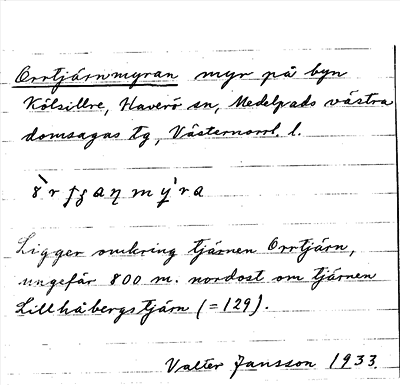 Orrtjärnmyran myr på byn
Kölsillre, Haverö sn, Medelpads västra
domsagas tg, Västernorrl. l.
Ligger omkring tjärnen Orrtjärn,
ungefär 800 m. nordost om tjärnen
Lillhåbergstjärn (=129).
Valter Jansson 1933.